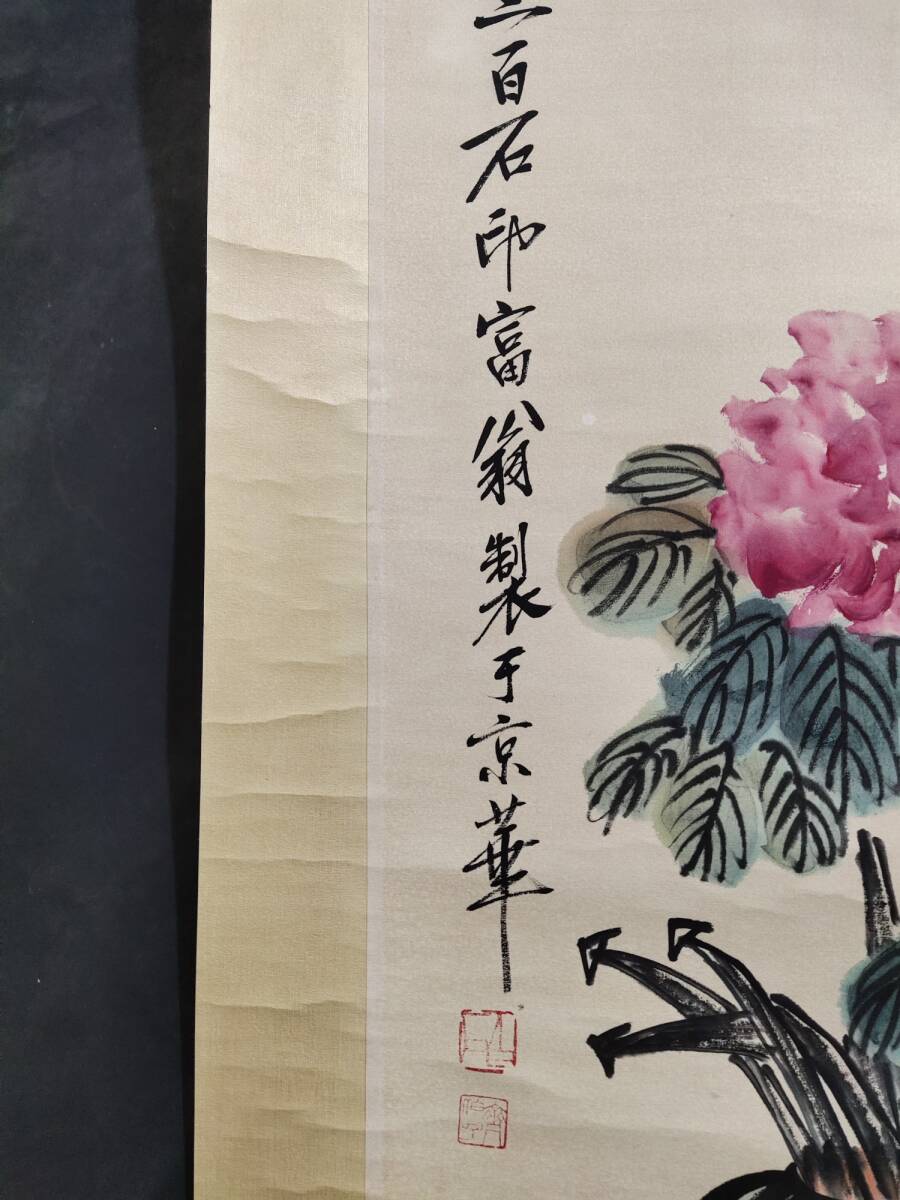 百石印富翁製于京華